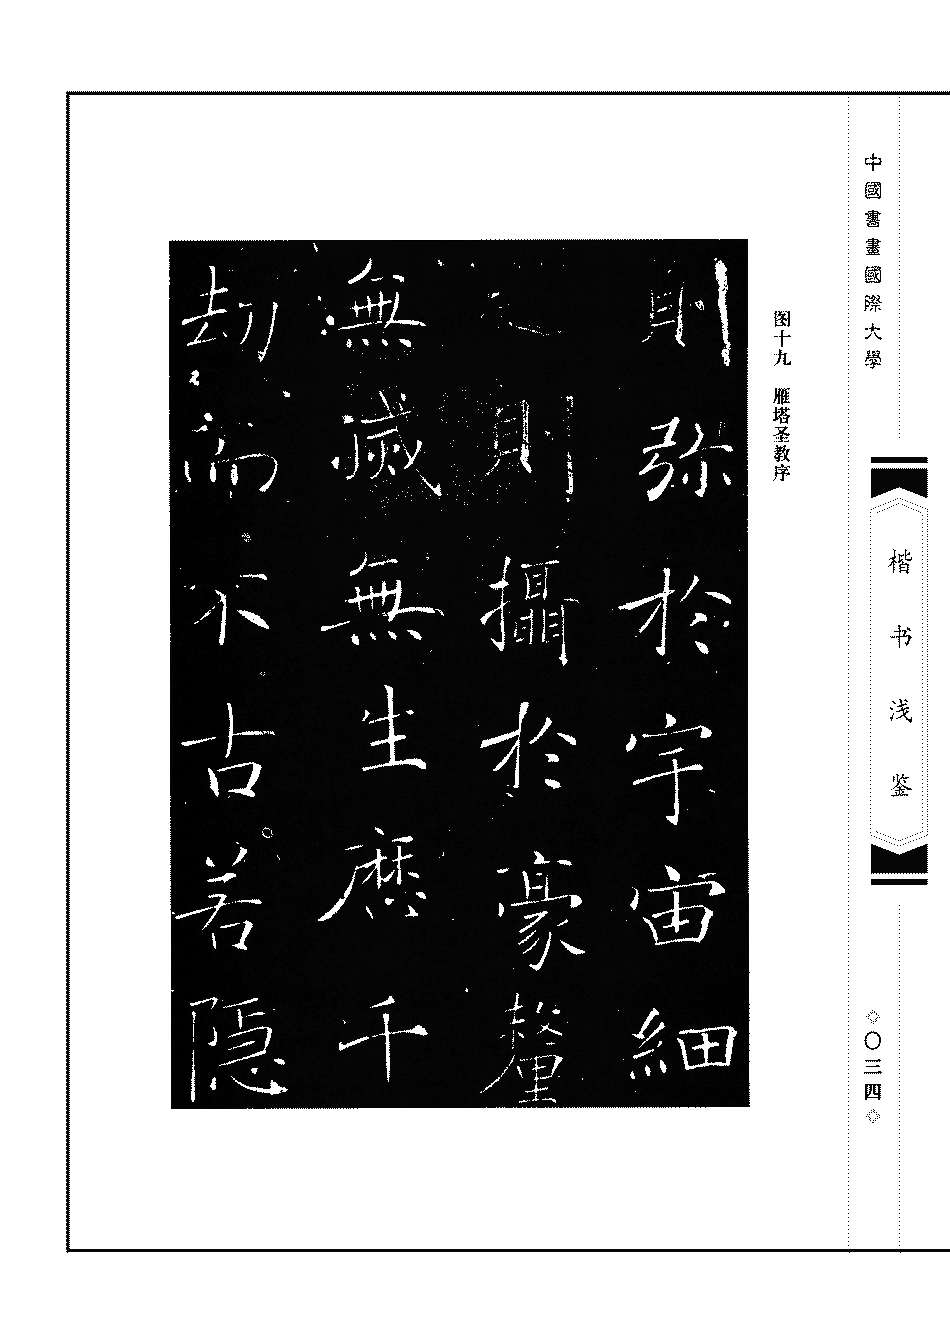 中國書畫國際大學
楷书浅鉴
〇三四
图十九 雁塔圣教序
則弥於宇宙細
之則攝於豪釐
無滅無生歷千
劫而不古若隱